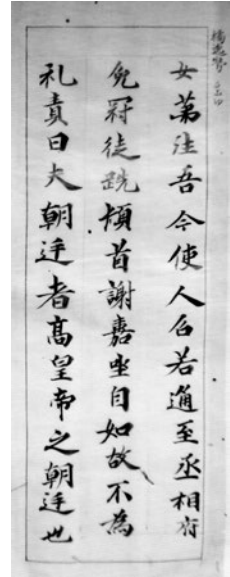 女第往吾今使人召若通至丞相府
免冠徒跣頓首謝嘉坐自如故不為
礼責曰夫朝廷者高皇帝之朝廷也